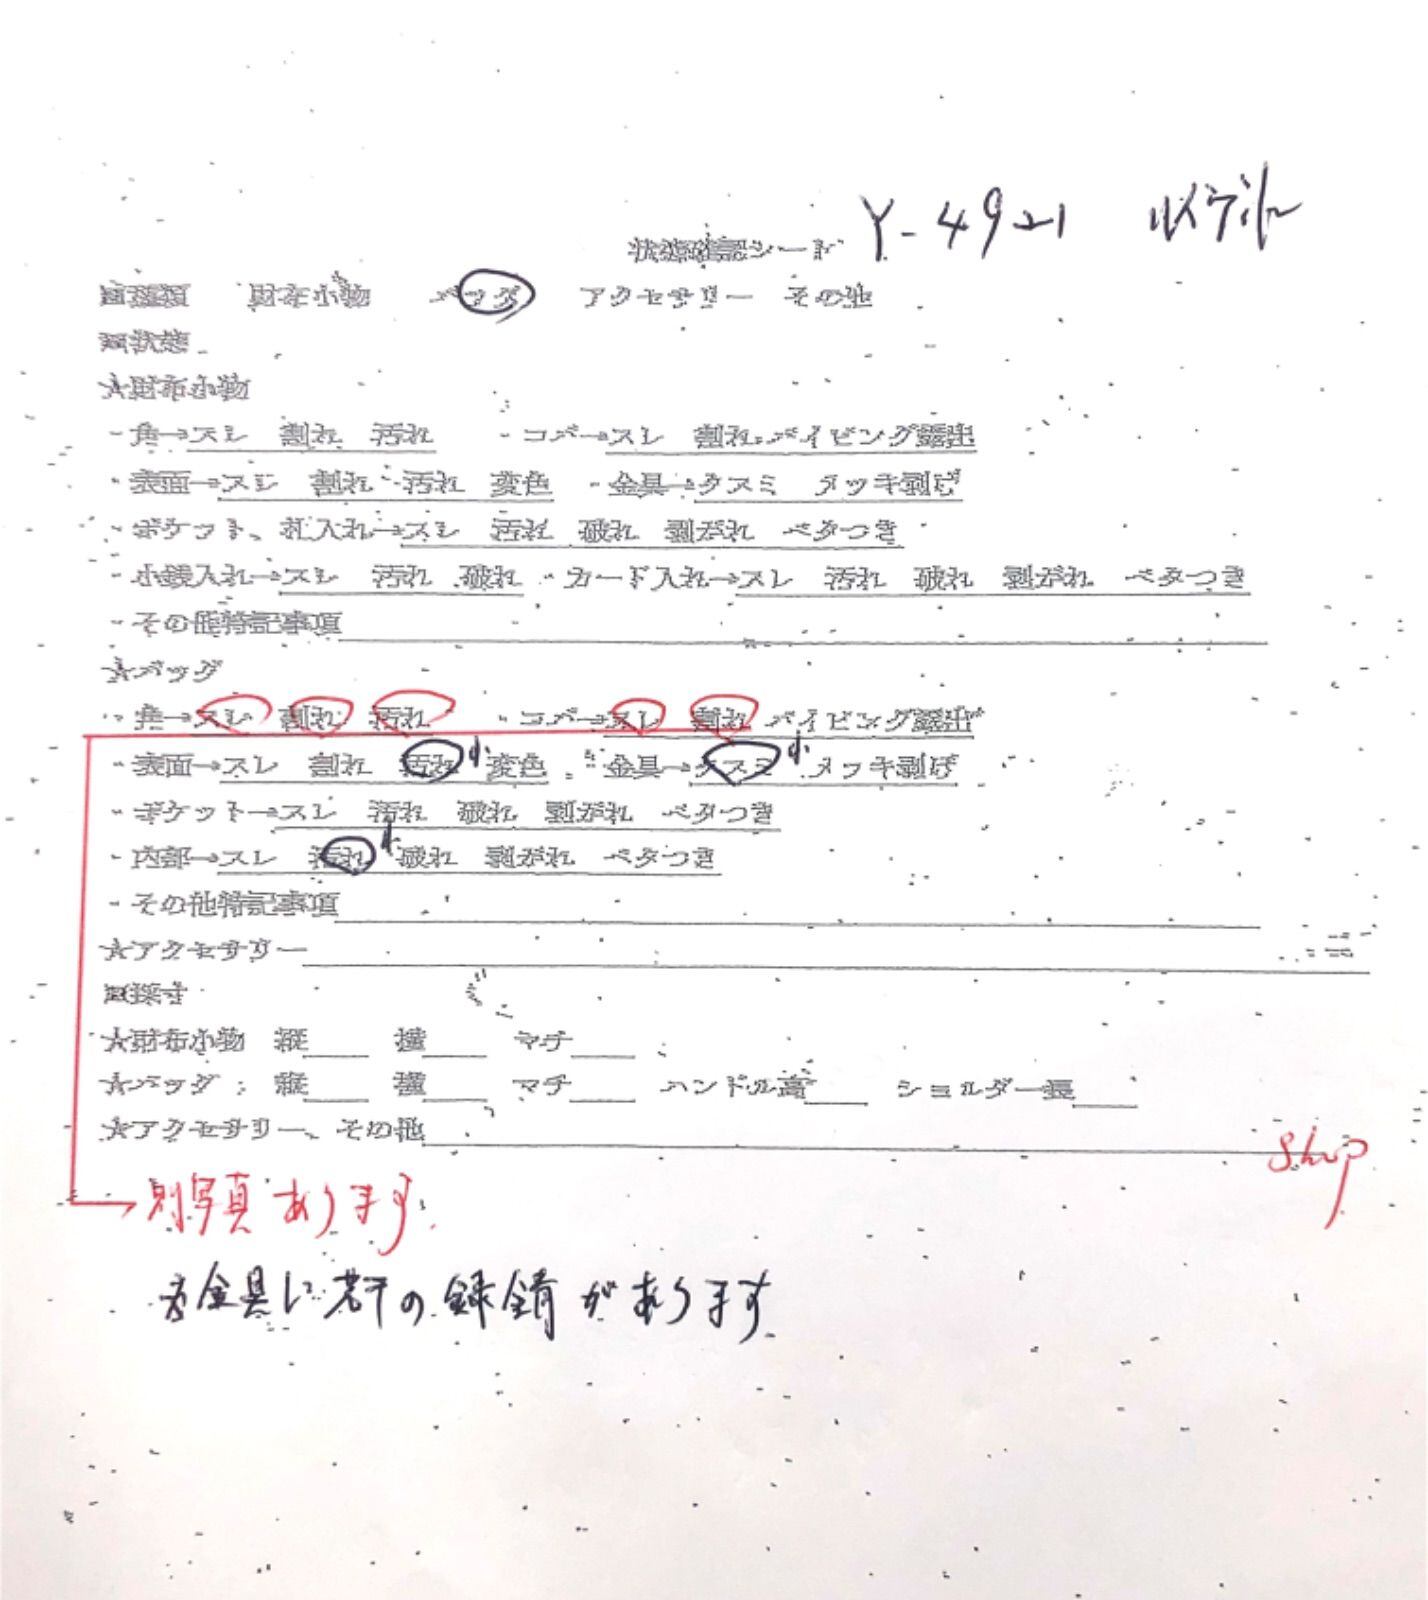 状態確認シート Y-4921 ルイヴィトン
■種類 財布小物 バッグ アクセサリー その他
■状態
★財布小物
・角→スレ 割れ 汚れ ・コバ→スレ 割れ パイピング露出
・表面→スレ 割れ 汚れ 変色 ・金具→クスミ メッキ剥げ
・ポケット、札入れ→スレ 汚れ 破れ 剥がれ ベタつき
・小銭入れ→スレ 汚れ 破れ ・カード入れ→スレ 汚れ 破れ 剥がれ ベタつき
・その他特記事項
★バッグ
・角→スレ 割れ 汚れ ・コバ→スレ 割れ パイピング露出
・表面→スレ 割れ 汚れ 小 変色 ・金具→クスミ 小 メッキ剥げ
・ポケット→スレ 汚れ 破れ 剥がれ ベタつき
・内部→スレ 汚れ 小 破れ 剥がれ ベタつき
・その他特記事項
★アクセサリー
■採寸
★財布小物 縦 横 マチ
★バッグ: 縦 横 マチ ハンドル高 ショルダー長
★アクセサリー、その他
Shop
→別写真あります.
金具に若干の緑錆があります